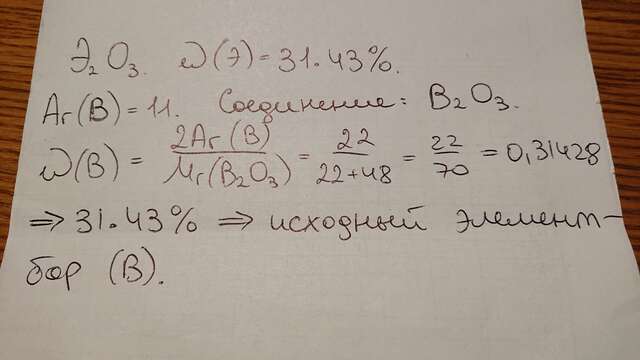 Э₂O₃. ω(Э)=31.43%.
Ar(B)=11. Соединение: B₂O₃.
ω(B) = 2Ar(B)/Mr(B₂O₃) = 22/22+48 = 22/70 = 0,31428
⇒ 31.43% ⇒ исходный элемент–
бор (B).